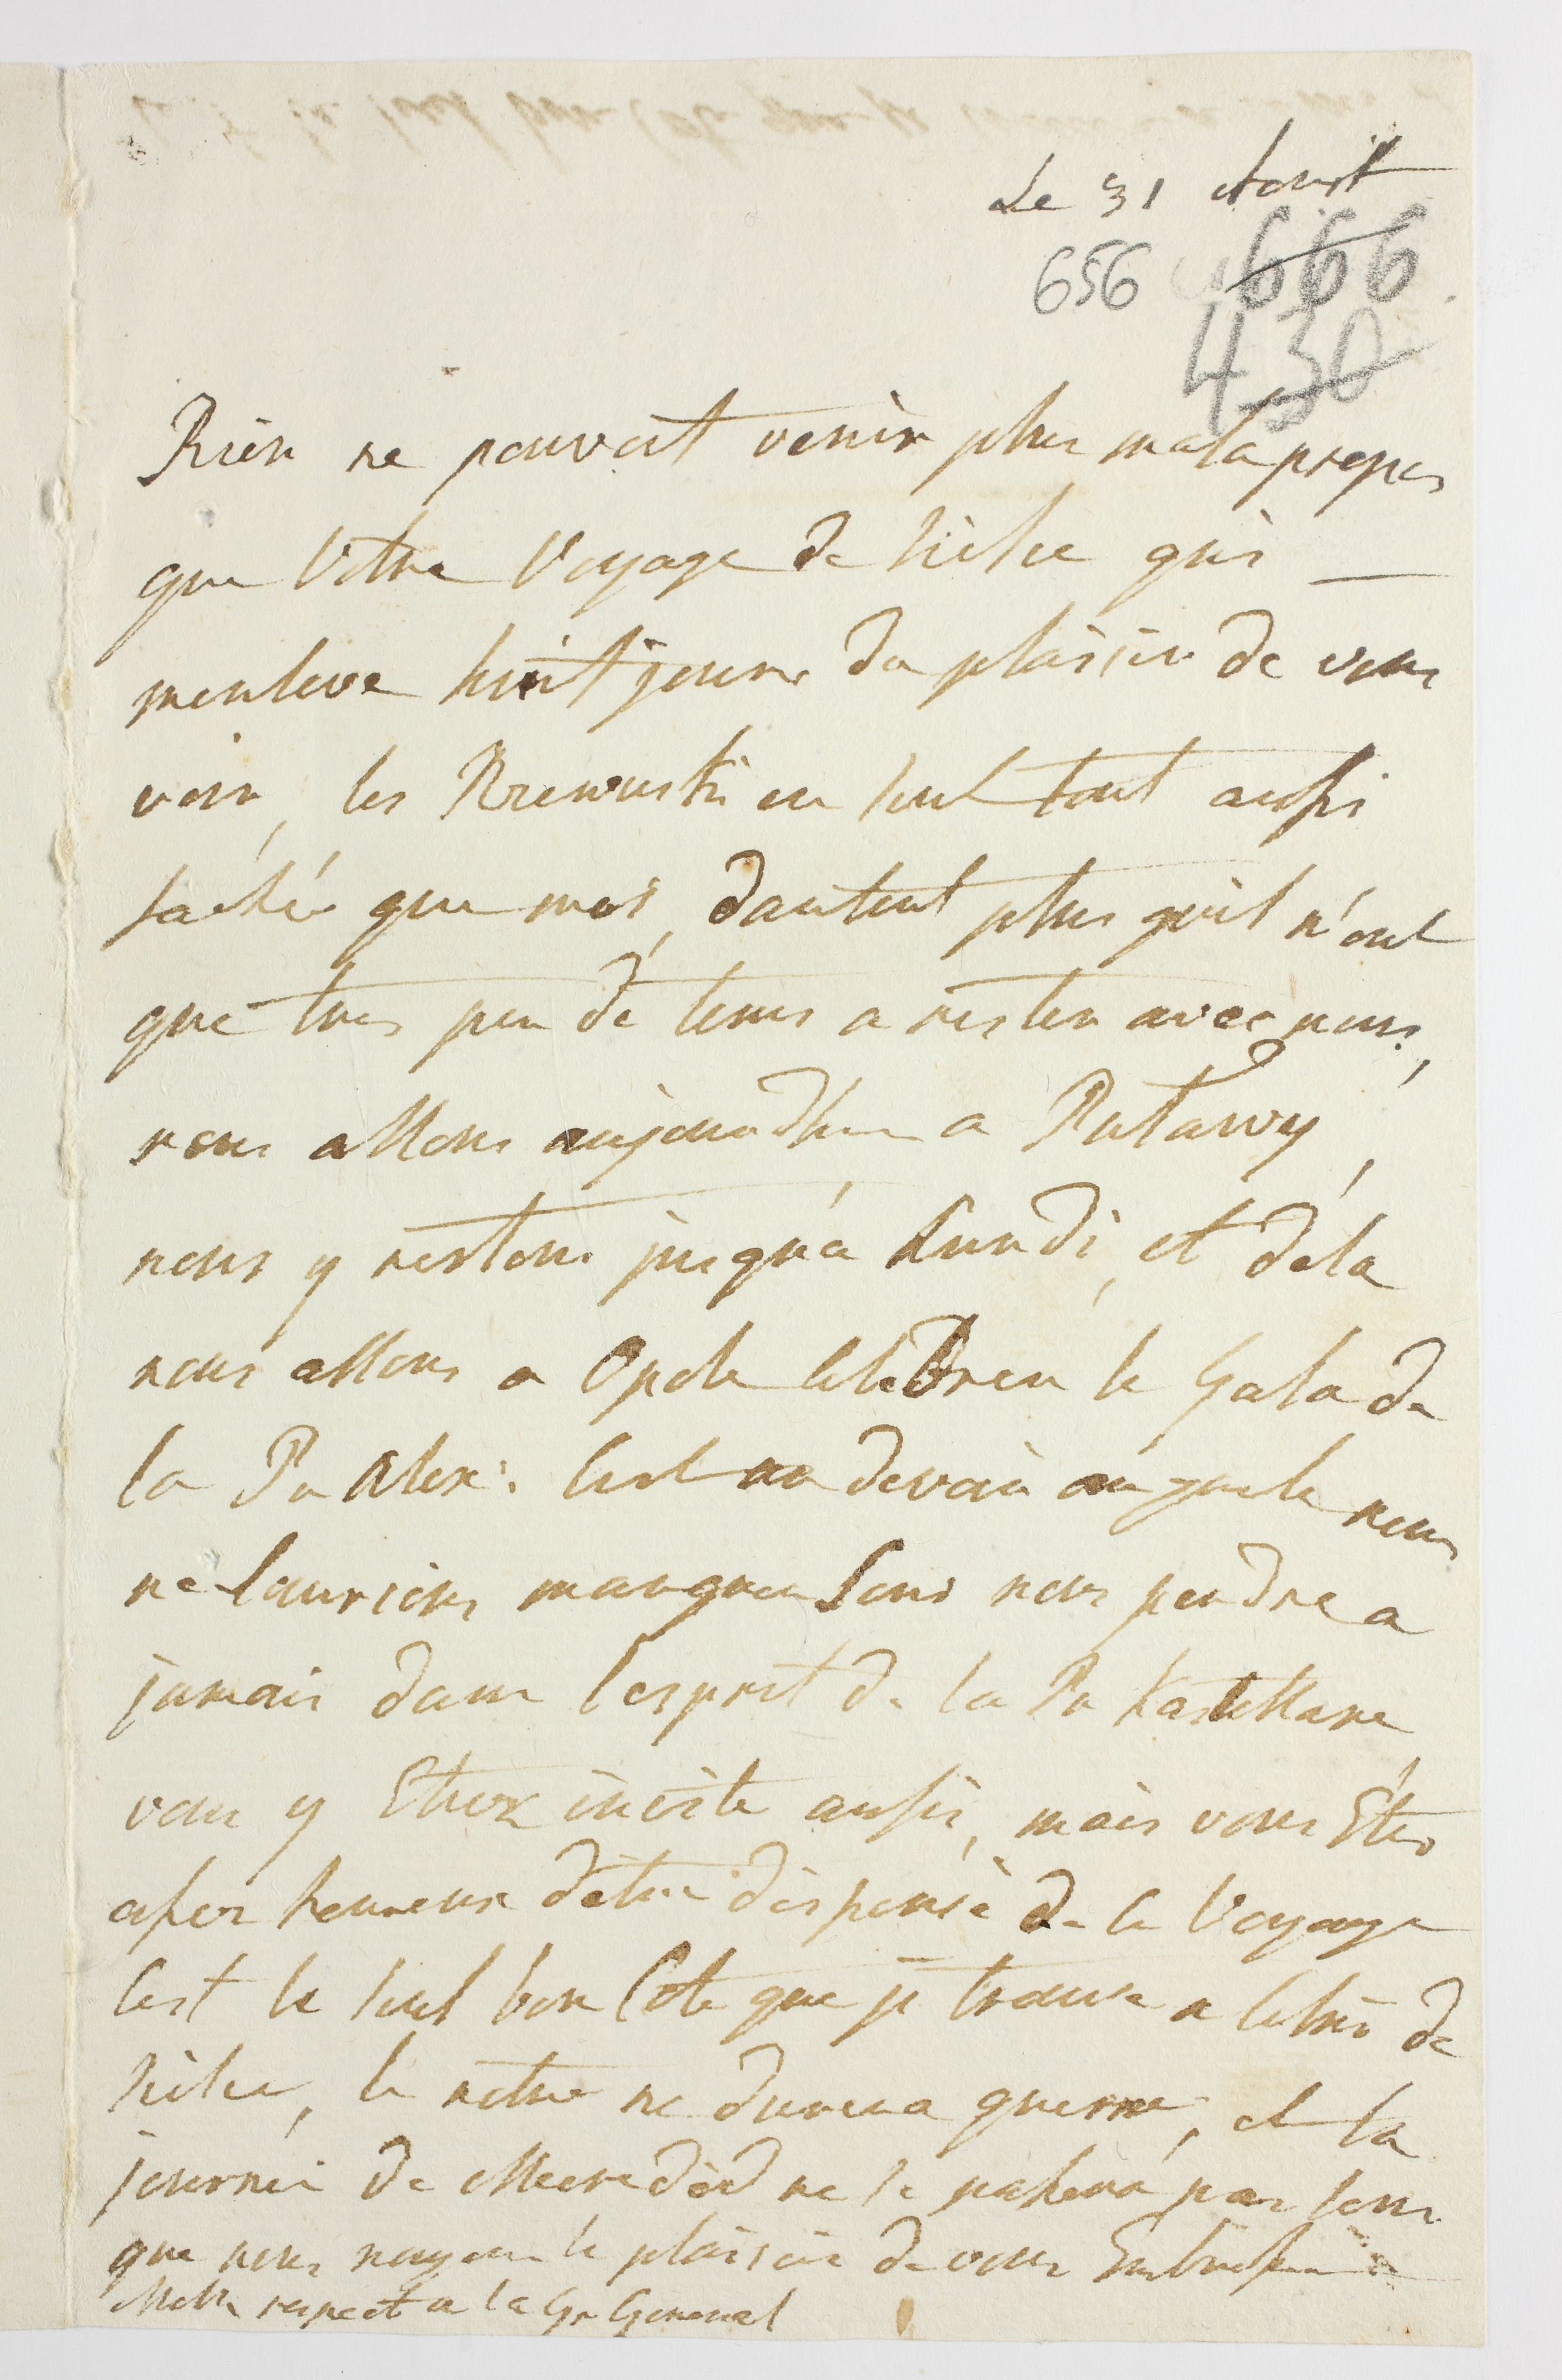 Le 31 Aoust
656 666
430
Rien ne pouvoit venir plus mala propos
que Votre Voyage de Sielce qui
menleve huit jours du plaisir de vous
voir, les Rzewuski en sont tout aussi
fachés que moi, dautent plus quil n'ont
que tres peu de tems a rester avec nous,
nous allons aujourdhui a Pulawy,
nous y restons jusqu'a Lundi, et dela
nous allons a Opole celebrer le Gala de
la Pss Alex: Cest un devoir au quele nous
ne sourions manquer sans nous perdre a
jamais dans lesprit de la Pss Kastellane
vous y Etiez invite aussi, mais vous Etes
assez heureux dètre dispensè de ce Voyage
Cest le seul bon Cote que je trouve a celui de
Sielce, le notre ne durera guerre, et la
journèe de Mecredid ne se passera pas sans
que nous nayons le plaisir de vous Embrasser
Mille respect a la Gr General